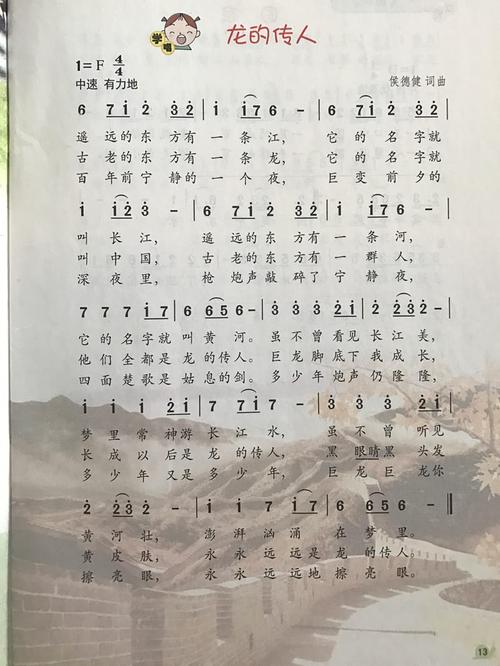 学唱
龙的传人
1=F 4/4
中速 有力地
侯德健 词曲
6 7 i 2 3 2 | i i 7 6 - | 6 7 i 2 3 2
遥 远的 东 方有 一 条 江， 它 的 名 字就
古 老的 东 方有 一 条 龙， 它 的 名 字就
百 年前 宁 静的 一 个 夜， 巨 变 前 夕的
i i 2 3 - | 6 7 i 2 3 2 | i i 7 6 -
叫 长 江， 遥 远的 东 方有 一 条 河，
叫 中 国， 古 老的 东 方有 一 群 人，
深 夜 里， 枪 炮声 敲 碎了 宁 静 夜，
7 7 7 i 7 | 6 6 5 6 - | 3 3 3 2 i | 2 2 i 2 -
它 的 名 字就 叫 黄 河。 虽 不 曾 看见 长 江 美，
他 们 全 都是 龙 的传 人。 巨 龙 脚 底下 我 成 长，
四 面 楚 歌是 姑 息的 剑。 多 少 年 炮声 仍 隆 隆，
i i i 2 i | 7 6 7 i - | 3 3 3 2 i
梦 里 常 神游 长 江 水， 虽 不 曾 听见
长 成 以 后是 龙 的传 人， 黑 眼睛 黑 头发
多 少 年 又是 多 少 年， 巨 龙 巨 龙你
2 2 3 2 - | i i i 7 6 | 7 6 6 6 -
黄 河 壮， 澎 湃 汹 涌 在 梦 里。
黄 皮 肤， 永 永 远 远是 龙 的传 人。
擦 亮 眼， 永 永 远 远地 擦 亮 眼。
13